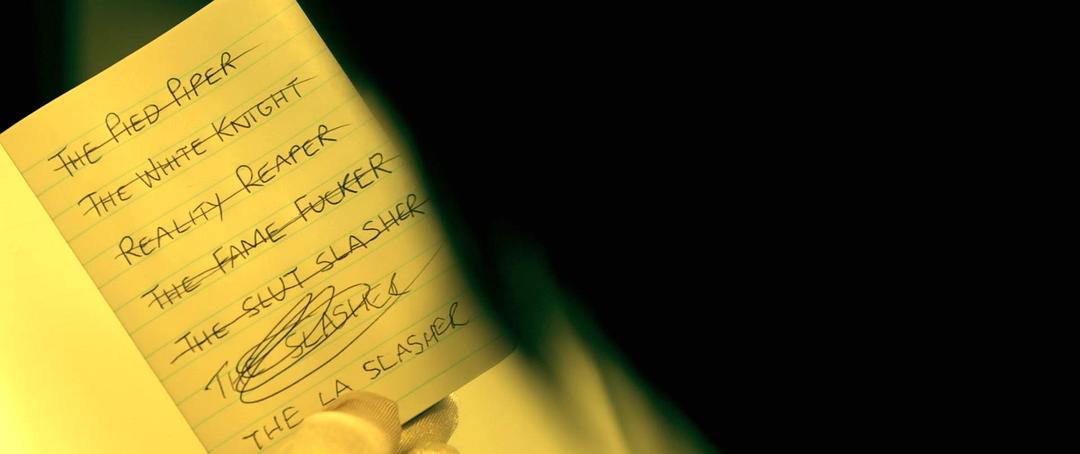 THE PIED PIPER
THE WHITE KNIGHT
REALITY REAPER
THE FAME FUCKER
THE SLUT SLASHER
THE SLASHER
THE LA SLASHER